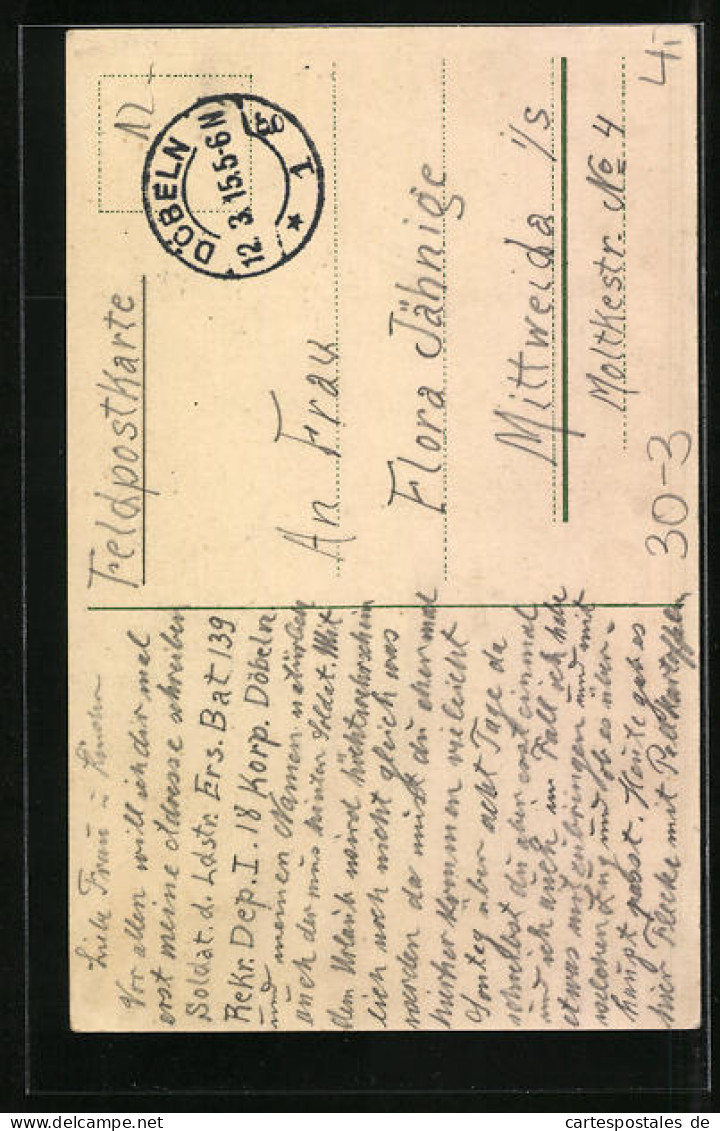 Feldpostkarte
12
DÖBELN
12. 3. 15. 5-6 N
* 1 g
An Frau
Flora Jähnige
Mittweida i/S
Moltkestr. No 4
4,-
30-3
Liebe Frau u Kinder
Vor allen will ich dir mal
erst meine Adresse schreiben
Soldat. d. Ldstr. Ers. Bat 139
Rekr. Dep. I. 18 Korp. Döbeln
und meinen Namen natürlich
auch der mus hinten Soldat. Mit
dem Urlaub wird höchstwahrschein
lich noch nicht gleich was
werden da must du eher mal
hierher kommen vieleicht
Sontag über acht Tage da
schreibst du aber erst einmal
und ich auch im Fall ich habe
etwas mitzubringen und mit
welchen Zug und ob es über-
haupt passt. Heute gab es
hier Flecke mit Pellkartoffeln
cartespostales de